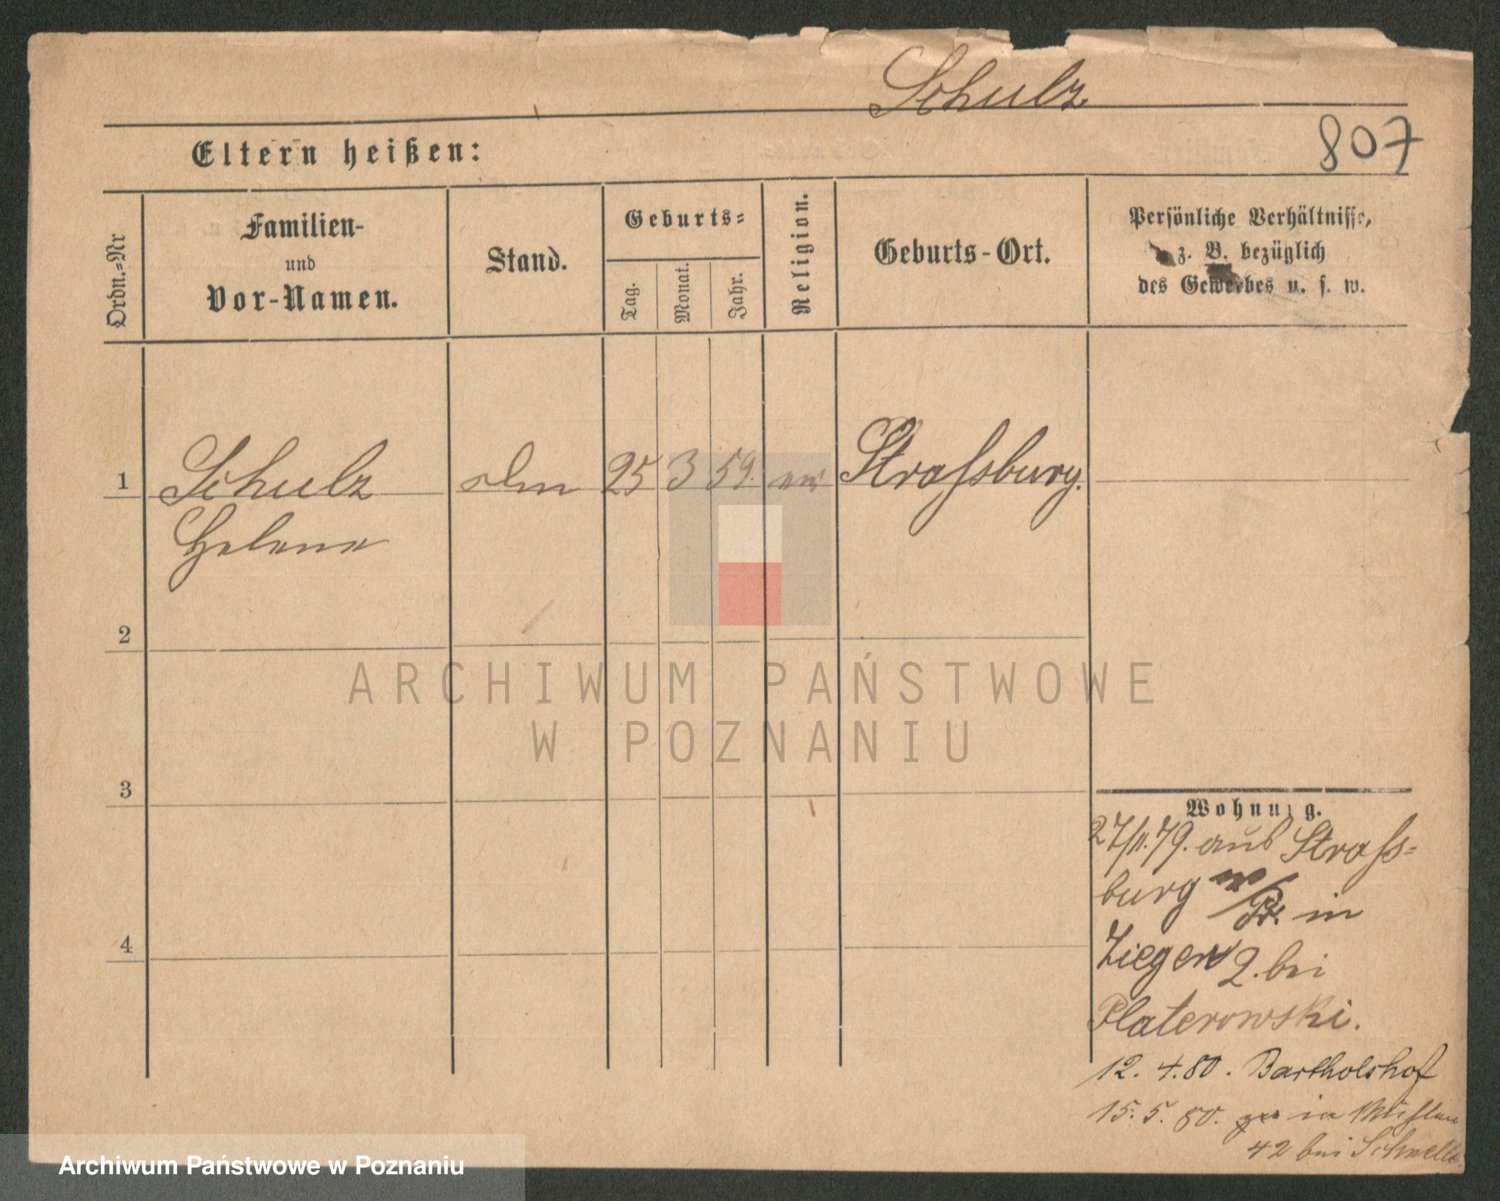 Schulz
807
Eltern heißen:
Ordn.=Nr
Familien-
und
Vor-Namen.
Stand.
Geburts=
Tag.
Monat.
Jahr.
Religion.
Geburts-Ort.
Persönliche Verhältnisse,
z. B. bezüglich
des Gewerbes u. s. w.
1
Schulz
Helene
25
3
59.
Strassburg.
2
3
4
Wohnung.
27/11.79. aus Strass=
burg W/Pr. in
Ziegen 2. bei
Platerowski.
12. 4. 80. Bartholshof
15. 5. 80. in Mühlen
42 bei Schnelle
ARCHIWUM PAŃSTWOWE
W POZNANIU
Archiwum Państwowe w Poznaniu